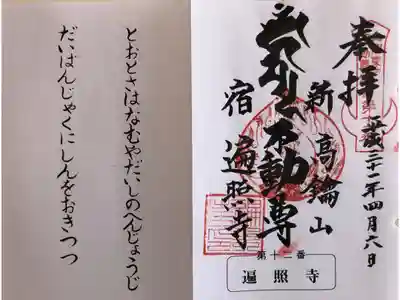 奉拝
平成三十一年四月六日
新高
山
不動尊
宿 遍照寺
第十二番
遍照寺
とおとさはなむやだいしのへんじょうじ
だいばんじゃくにしんをおきつつ